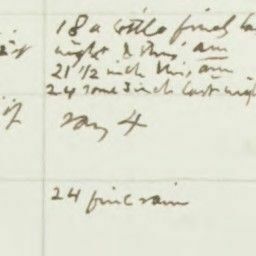 18 a little final la
night & this am
21 1/2 inch this am
24 some 3 inch last nigh
say 4
24 fine rain